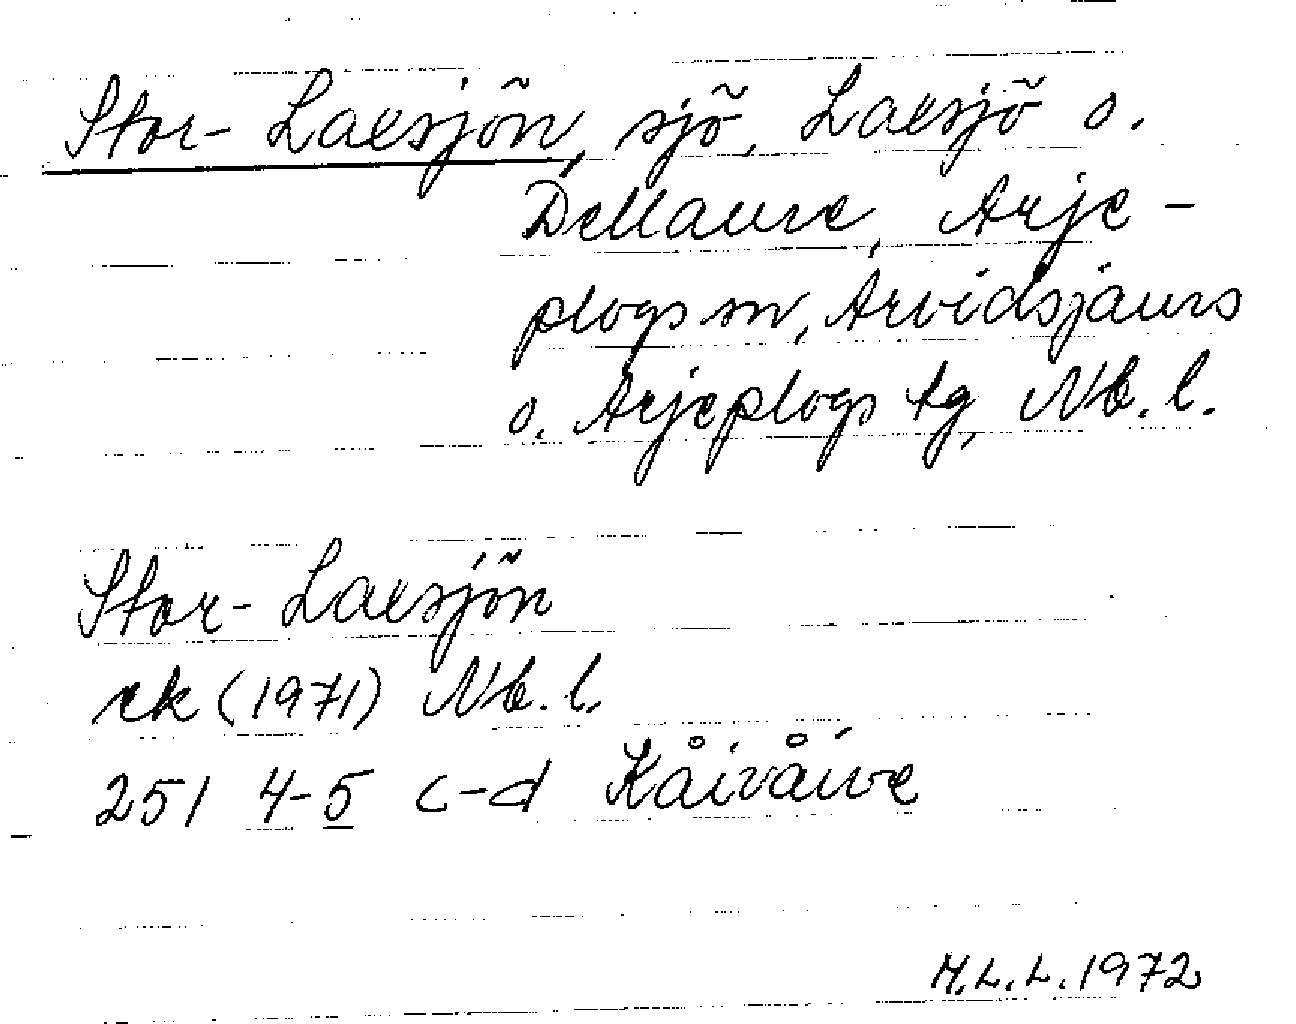 Stor-Laxsjön, sjö, Laxsjö o.
Dellaure, Arje-
plogs sn, Arvidsjaurs
o. Arjeplogs tg, Nb. l.
Stor-Laxsjön
ek (1971) Nb. l.
251 4-5 c-d Kåivåive
M.L.L. 1972